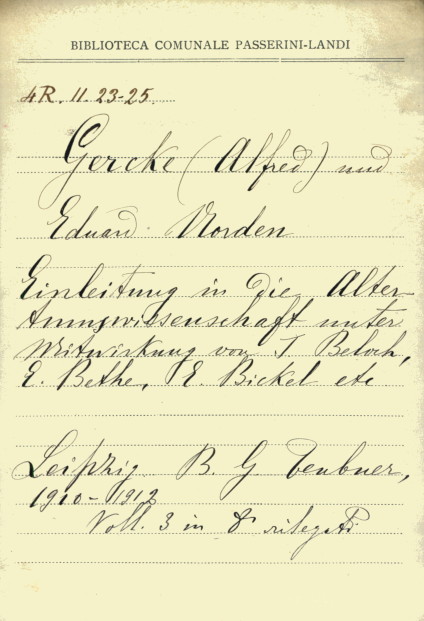 BIBLIOTECA COMUNALE PASSERINI-LANDI
4R. 11. 23-25.
Gercke (Alfred) und
Eduard Norden
Einleitung in die Alter-
tumswissenschaft unter
Mitwirkung von J Beloch,
E. Bethe, E. Bickel etc
Leipzig B. G. Teubner,
1910-1912
Voll. 3 in 8° rilegati